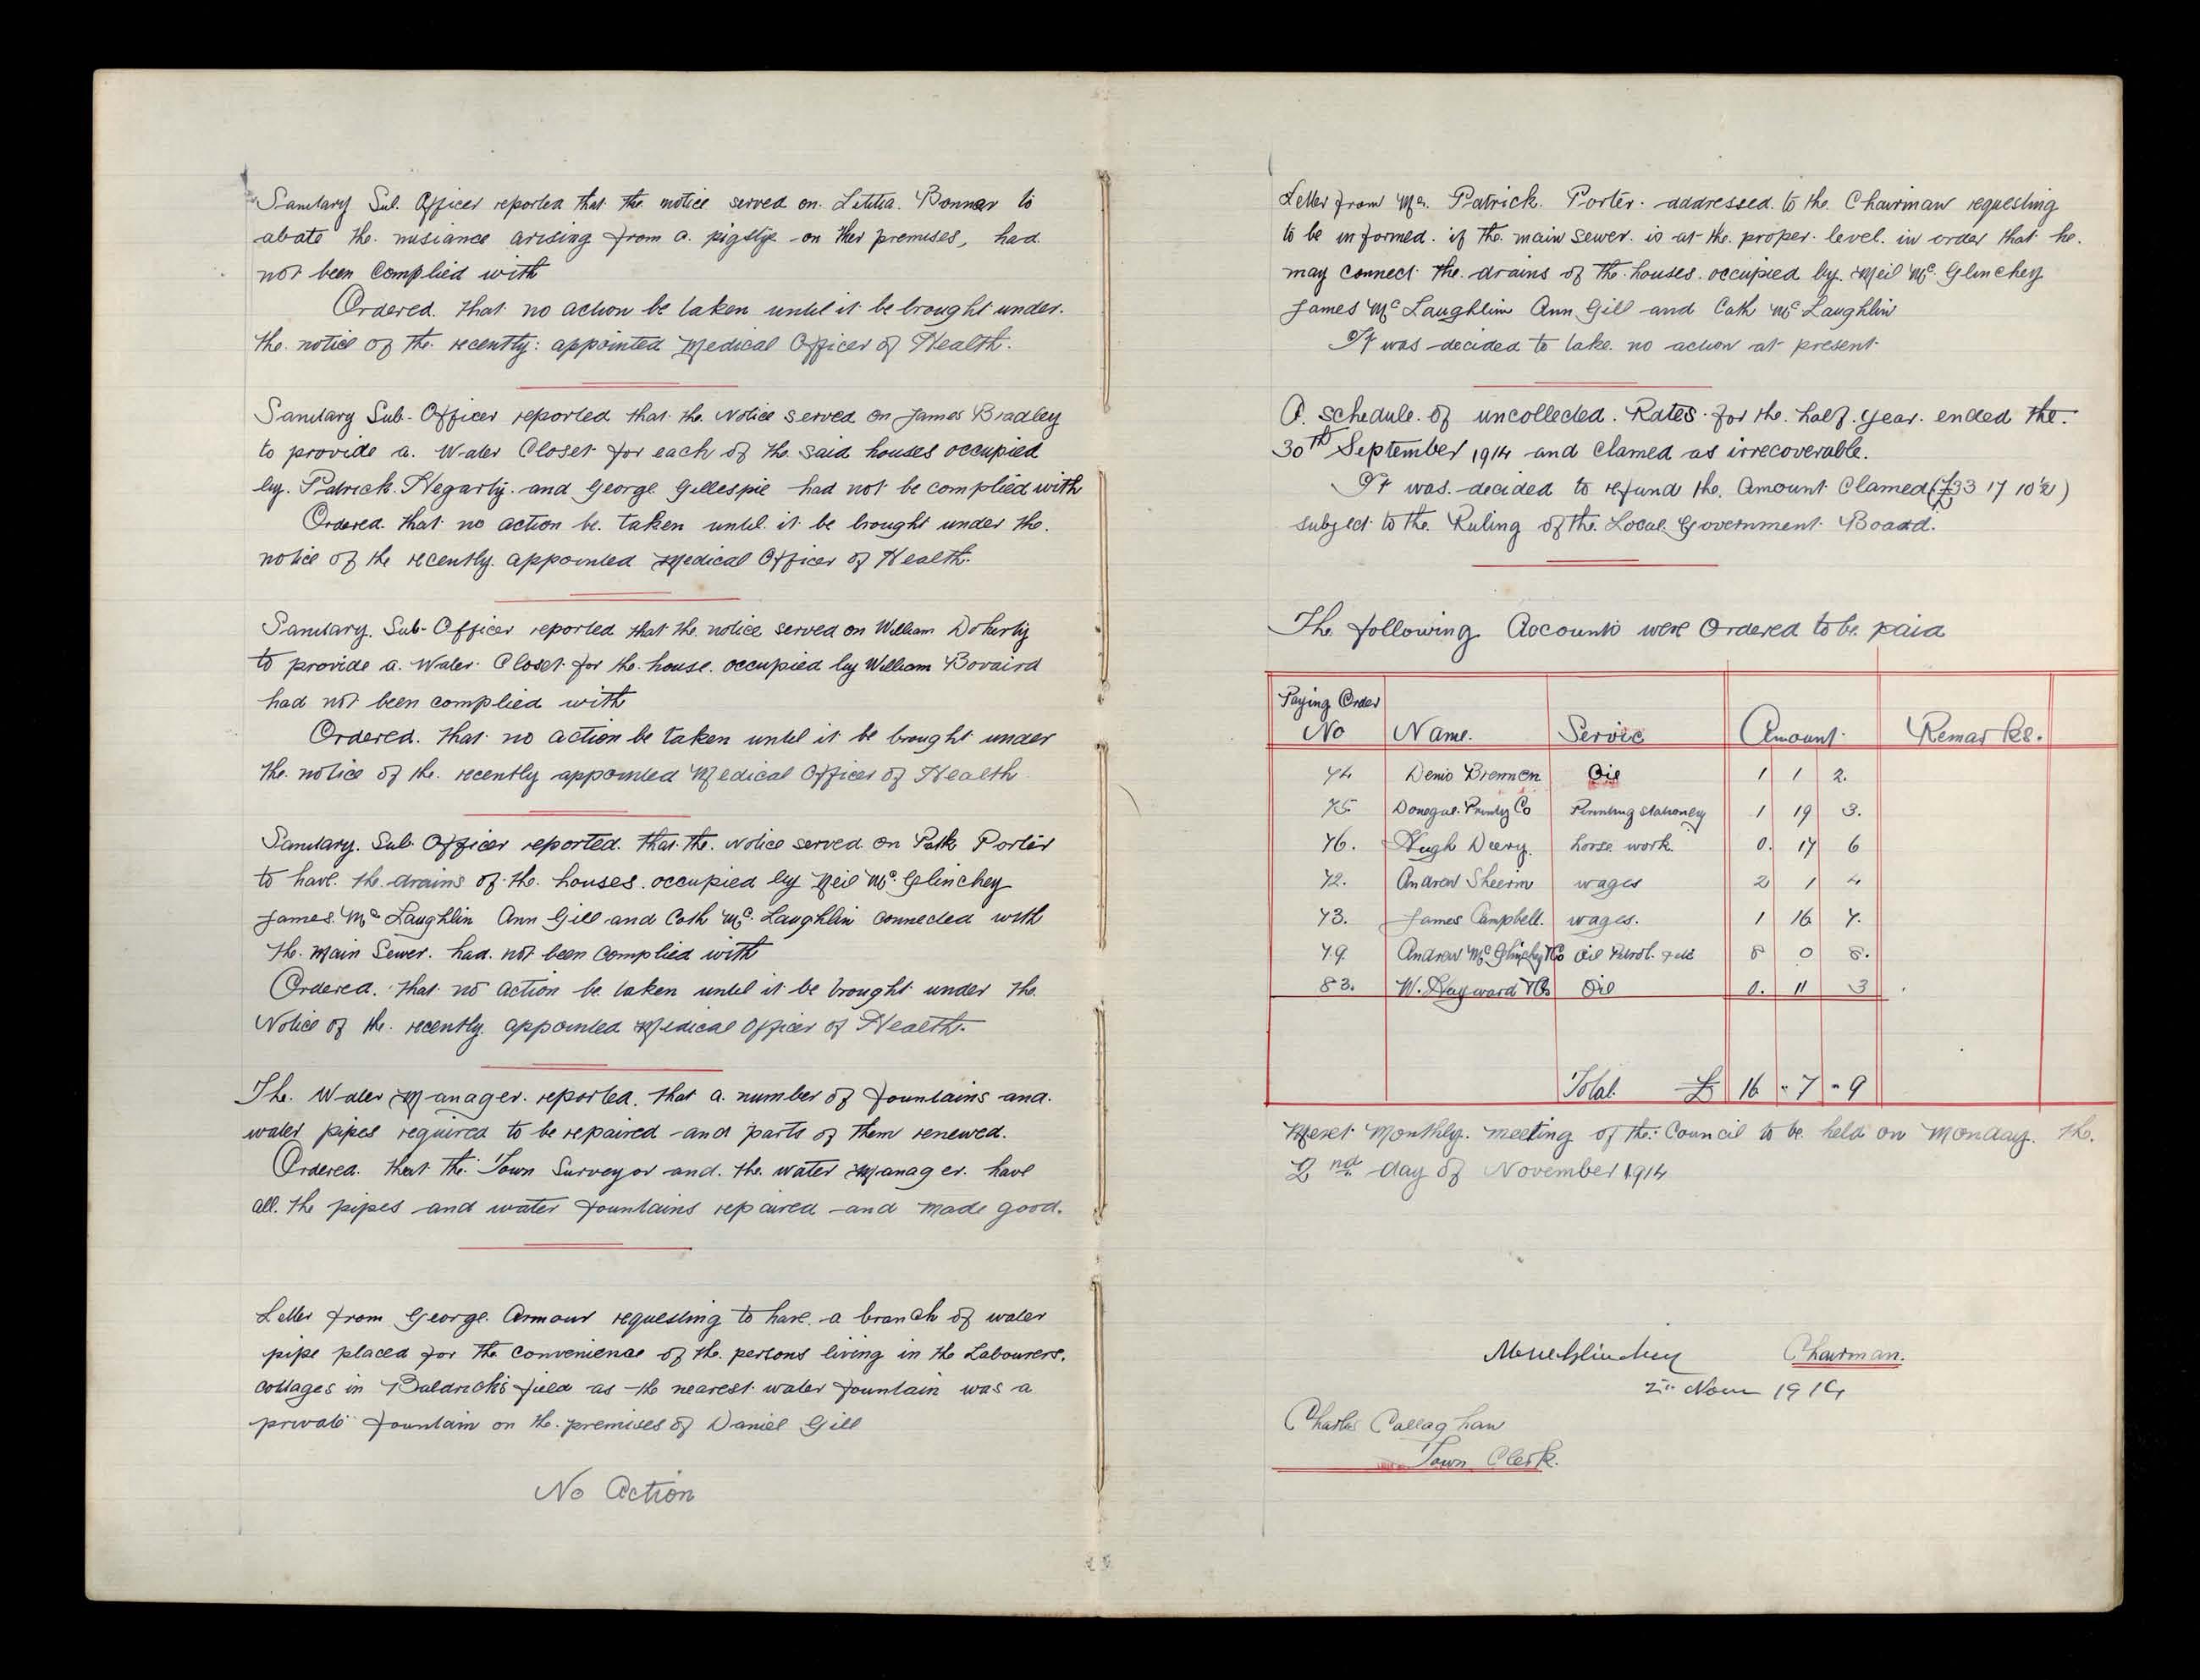 Sanitary Sub. Officer reported that the notice served on Letitia Bonnar to
abate the nusiance arising from a pigstye on her premises, had
not been Complied with
Ordered that no action be taken until it be brought under
the notice of the recently appointed Medical Officer of Health.
Sanitary Sub-Officer reported that the Notice served on James Bradley
to provide a Water Closet for each of the said houses occupied
by Patrick Hegarty and George Gillespie had not be complied with
Ordered that no action be taken until it be brought under the
notice of the recently appointed Medical Officer of Health.
Sanitary Sub-Officer reported that the notice served on William Doherty
to provide a Water Closet for the house occupied by William Bovaird
had not been complied with
Ordered that no action be taken until it be brought under
the notice of the recently appointed Medical Officer of Health
Sanitary Sub Officer reported that the Notice served on Patk Porter
to have the drains of the houses occupied by Neil Mc Glinchey
James Mc Laughlin Ann Gill and Cath Mc Laughlin connected with
the Main Sewer had not been complied with
Ordered that no action be taken until it be brought under the
Notice of the recently appointed Medical Officer of Health.
The Water Manager reported that a number of fountains and
water pipes required to be repaired and parts of them renewed.
Ordered that the Town Surveyor and the water Manager have
all the pipes and water fountains repaired and made good.
Letter from George Armour requesting to have a branch of water
pipe placed for the convenience of the persons living in the Labourers,
cottages in Baldrick's field as the nearest water fountain was a
private fountain on the premises of Daniel Gill
No Action
Letter from Mr. Patrick Porter addressed to the Chairman requesting
to be informed if the main sewer is at the proper level in order that he
may connect the drains of the houses occupied by Neil Mc Glinchey
James Mc Laughlin Ann Gill and Cath Mc Laughlin
It was decided to take no action at present
A schedule of uncollected Rates for the half year ended the
30th September 1914 and Clamed as irrecoverable.
It was decided to refund the Amount Clamed (£33 17 10½)
subject to the Ruling of the Local Government Board.
The following Accounts were Ordered to be paid
Paying Order No Name. Servic Amount Remarks.
74 Denis Brennen Oil 1 1 2.
75 Donegal Printg Co Printing stationey 1 19 3.
76. Hugh Deery. horse work. 0. 17 6
72. Andrew Sheerin wages 2 1 4
73. James Campbell. wages. 1 16 7.
79 Andrew Mc Glinchey & Co Oil Petrol 8 0 8.
83. W. Hayward & Co Oil 0. 11 3
Total £ 16 - 7 - 9
Next Monthly meeting of the Council to be held on Monday the
2nd day of November 1914
Chairman.
2nd Novr 1914
Charles Callaghan
Town Clerk.